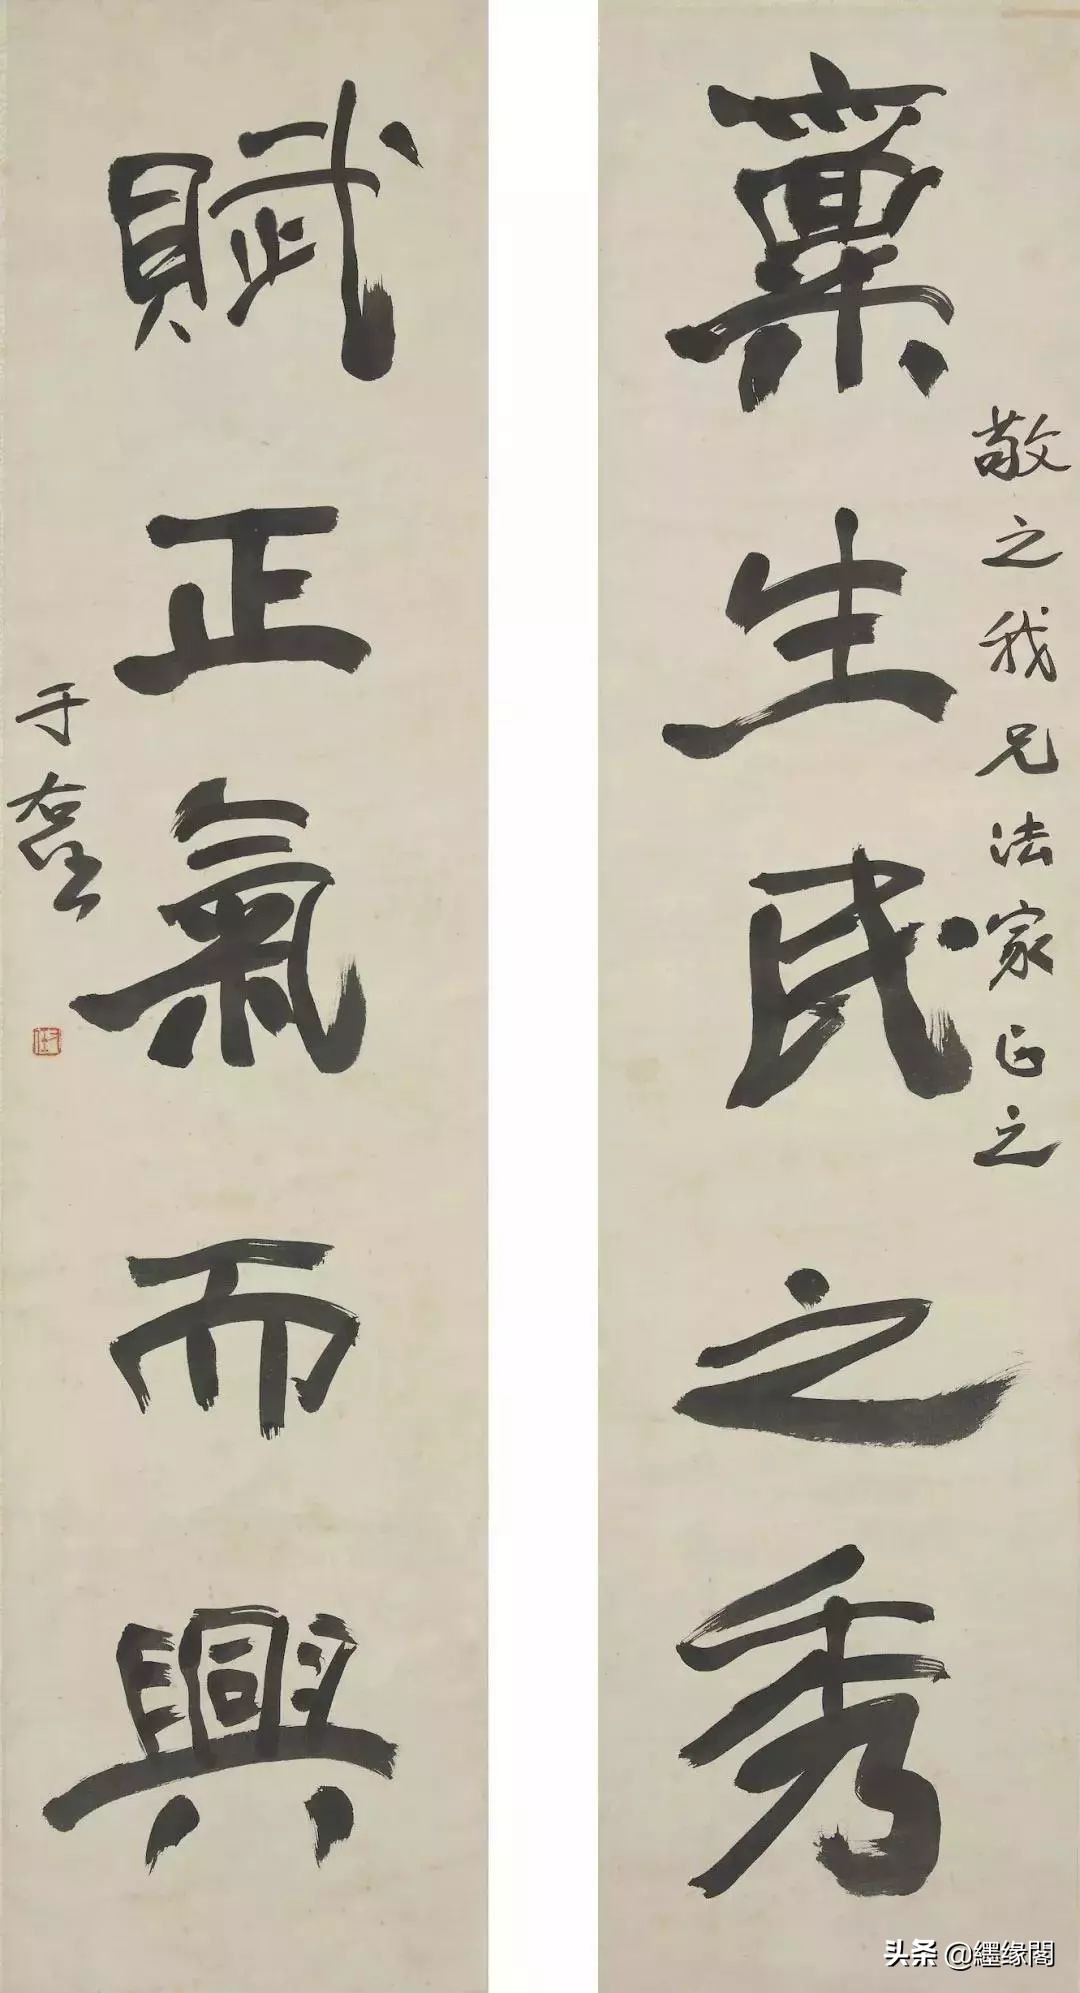 敬之我兄法家正之
稟生民之秀
賦正氣而興
于右任
头条 @纆缘阁